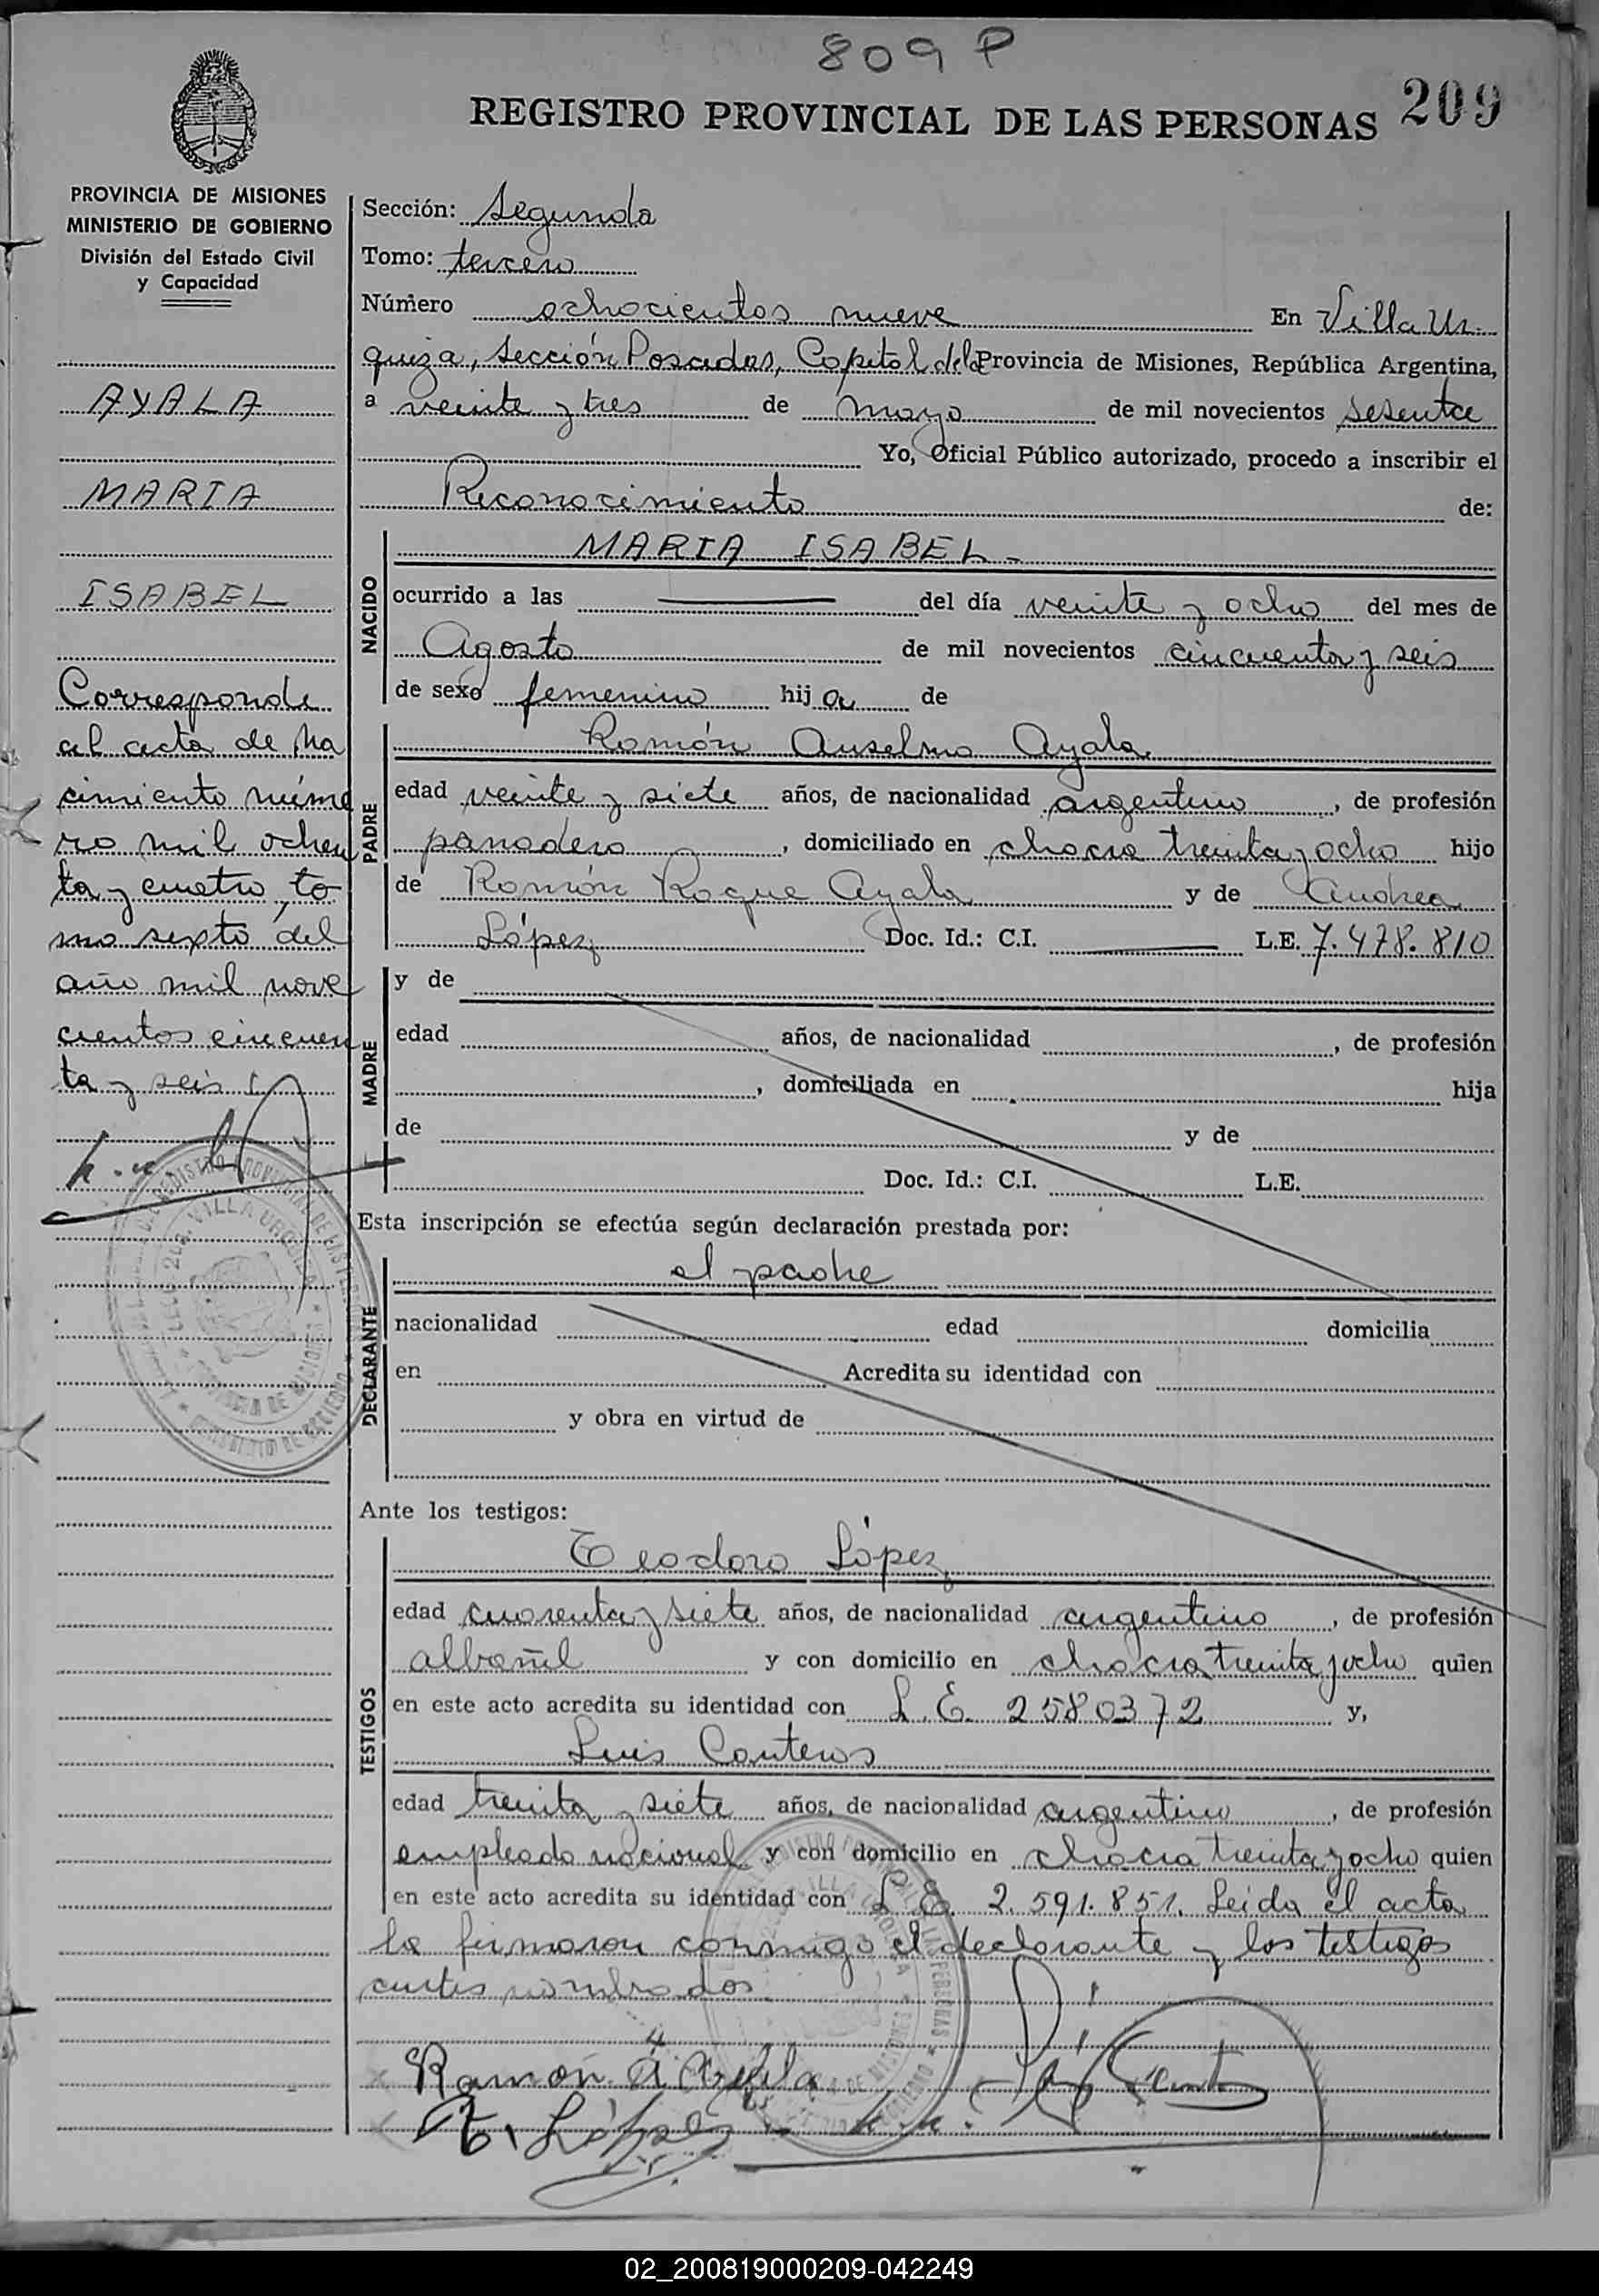 809 P
209
REGISTRO PROVINCIAL DE LAS PERSONAS
PROVINCIA DE MISIONES
MINISTERIO DE GOBIERNO
División del Estado Civil
y Capacidad
AYALA
MARIA
ISABEL
Corresponde
al acta de na
cimiento núme
ro mil ochen
ta y cuatro, to
mo sexto del
año mil nove
cientos cincuen
ta y seis
Sección: Segunda
Tomo: tercero
Número ochocientos nueve En Villa Ur
quiza, Sección Posadas, Capital de la Provincia de Misiones, República Argentina,
a veinte y tres de mayo de mil novecientos sesenta
Yo, Oficial Público autorizado, procedo a inscribir el
Reconocimiento de:
NACIDO
MARIA ISABEL-
ocurrido a las ——— del día veinte y ocho del mes de
Agosto de mil novecientos cincuenta y seis
de sexo femenino hija de
PADRE
Román Anselmo Ayala
edad veinte y siete años, de nacionalidad argentino, de profesión
panadero, domiciliado en chacra treinta y ocho hijo
de Román Roque Ayala y de Andrea
López Doc. Id.: C.I. ——— L.E. 7.478.810
MADRE
y de
edad años, de nacionalidad , de profesión
, domiciliada en hija
de y de
Doc. Id.: C.I. L.E.
Esta inscripción se efectúa según declaración prestada por:
DECLARANTE
el padre
nacionalidad edad domicilia
en Acredita su identidad con
y obra en virtud de
Ante los testigos:
TESTIGOS
Teodoro López
edad cuarenta y siete años, de nacionalidad argentino, de profesión
albañil y con domicilio en chacra treinta y ocho quien
en este acto acredita su identidad con L.E. 2580372 y,
Luis Canteros
edad treinta y siete años, de nacionalidad argentino, de profesión
empleado nacional y con domicilio en chacra treinta y ocho quien
en este acto acredita su identidad con L.E. 2.591.851. Leida el acta
la firmaron conmigo el declarante y los testigos
antes nombrados.
Ramón A. Ayala
T. López
02_200819000209-042249